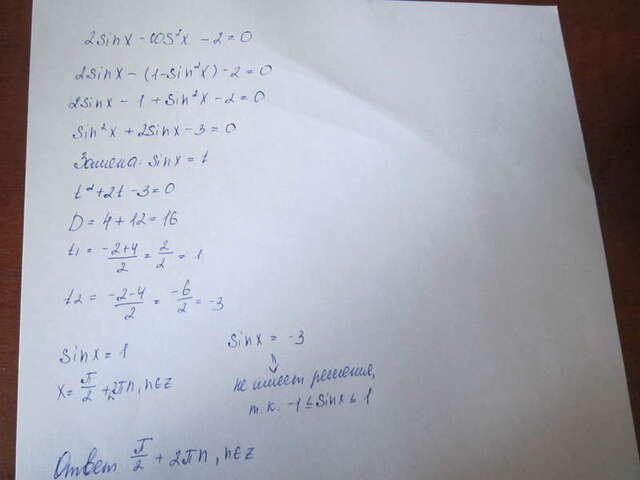 2sinx - cos²x - 2 = 0
2sinx - (1-sin²x) - 2 = 0
2sinx - 1 + sin²x - 2 = 0
sin²x + 2sinx - 3 = 0
Замена: sinx = t
t² + 2t - 3 = 0
D = 4 + 12 = 16
t1 = -2+4/2 = 2/2 = 1
t2 = -2-4/2 = -6/2 = -3
sinx = 1
x = π/2 + 2πn, n∈z
sinx = -3
⇓
не имеет решения,
т.к. -1 ≤ sinx ≤ 1
Ответ: π/2 + 2πn, n∈z